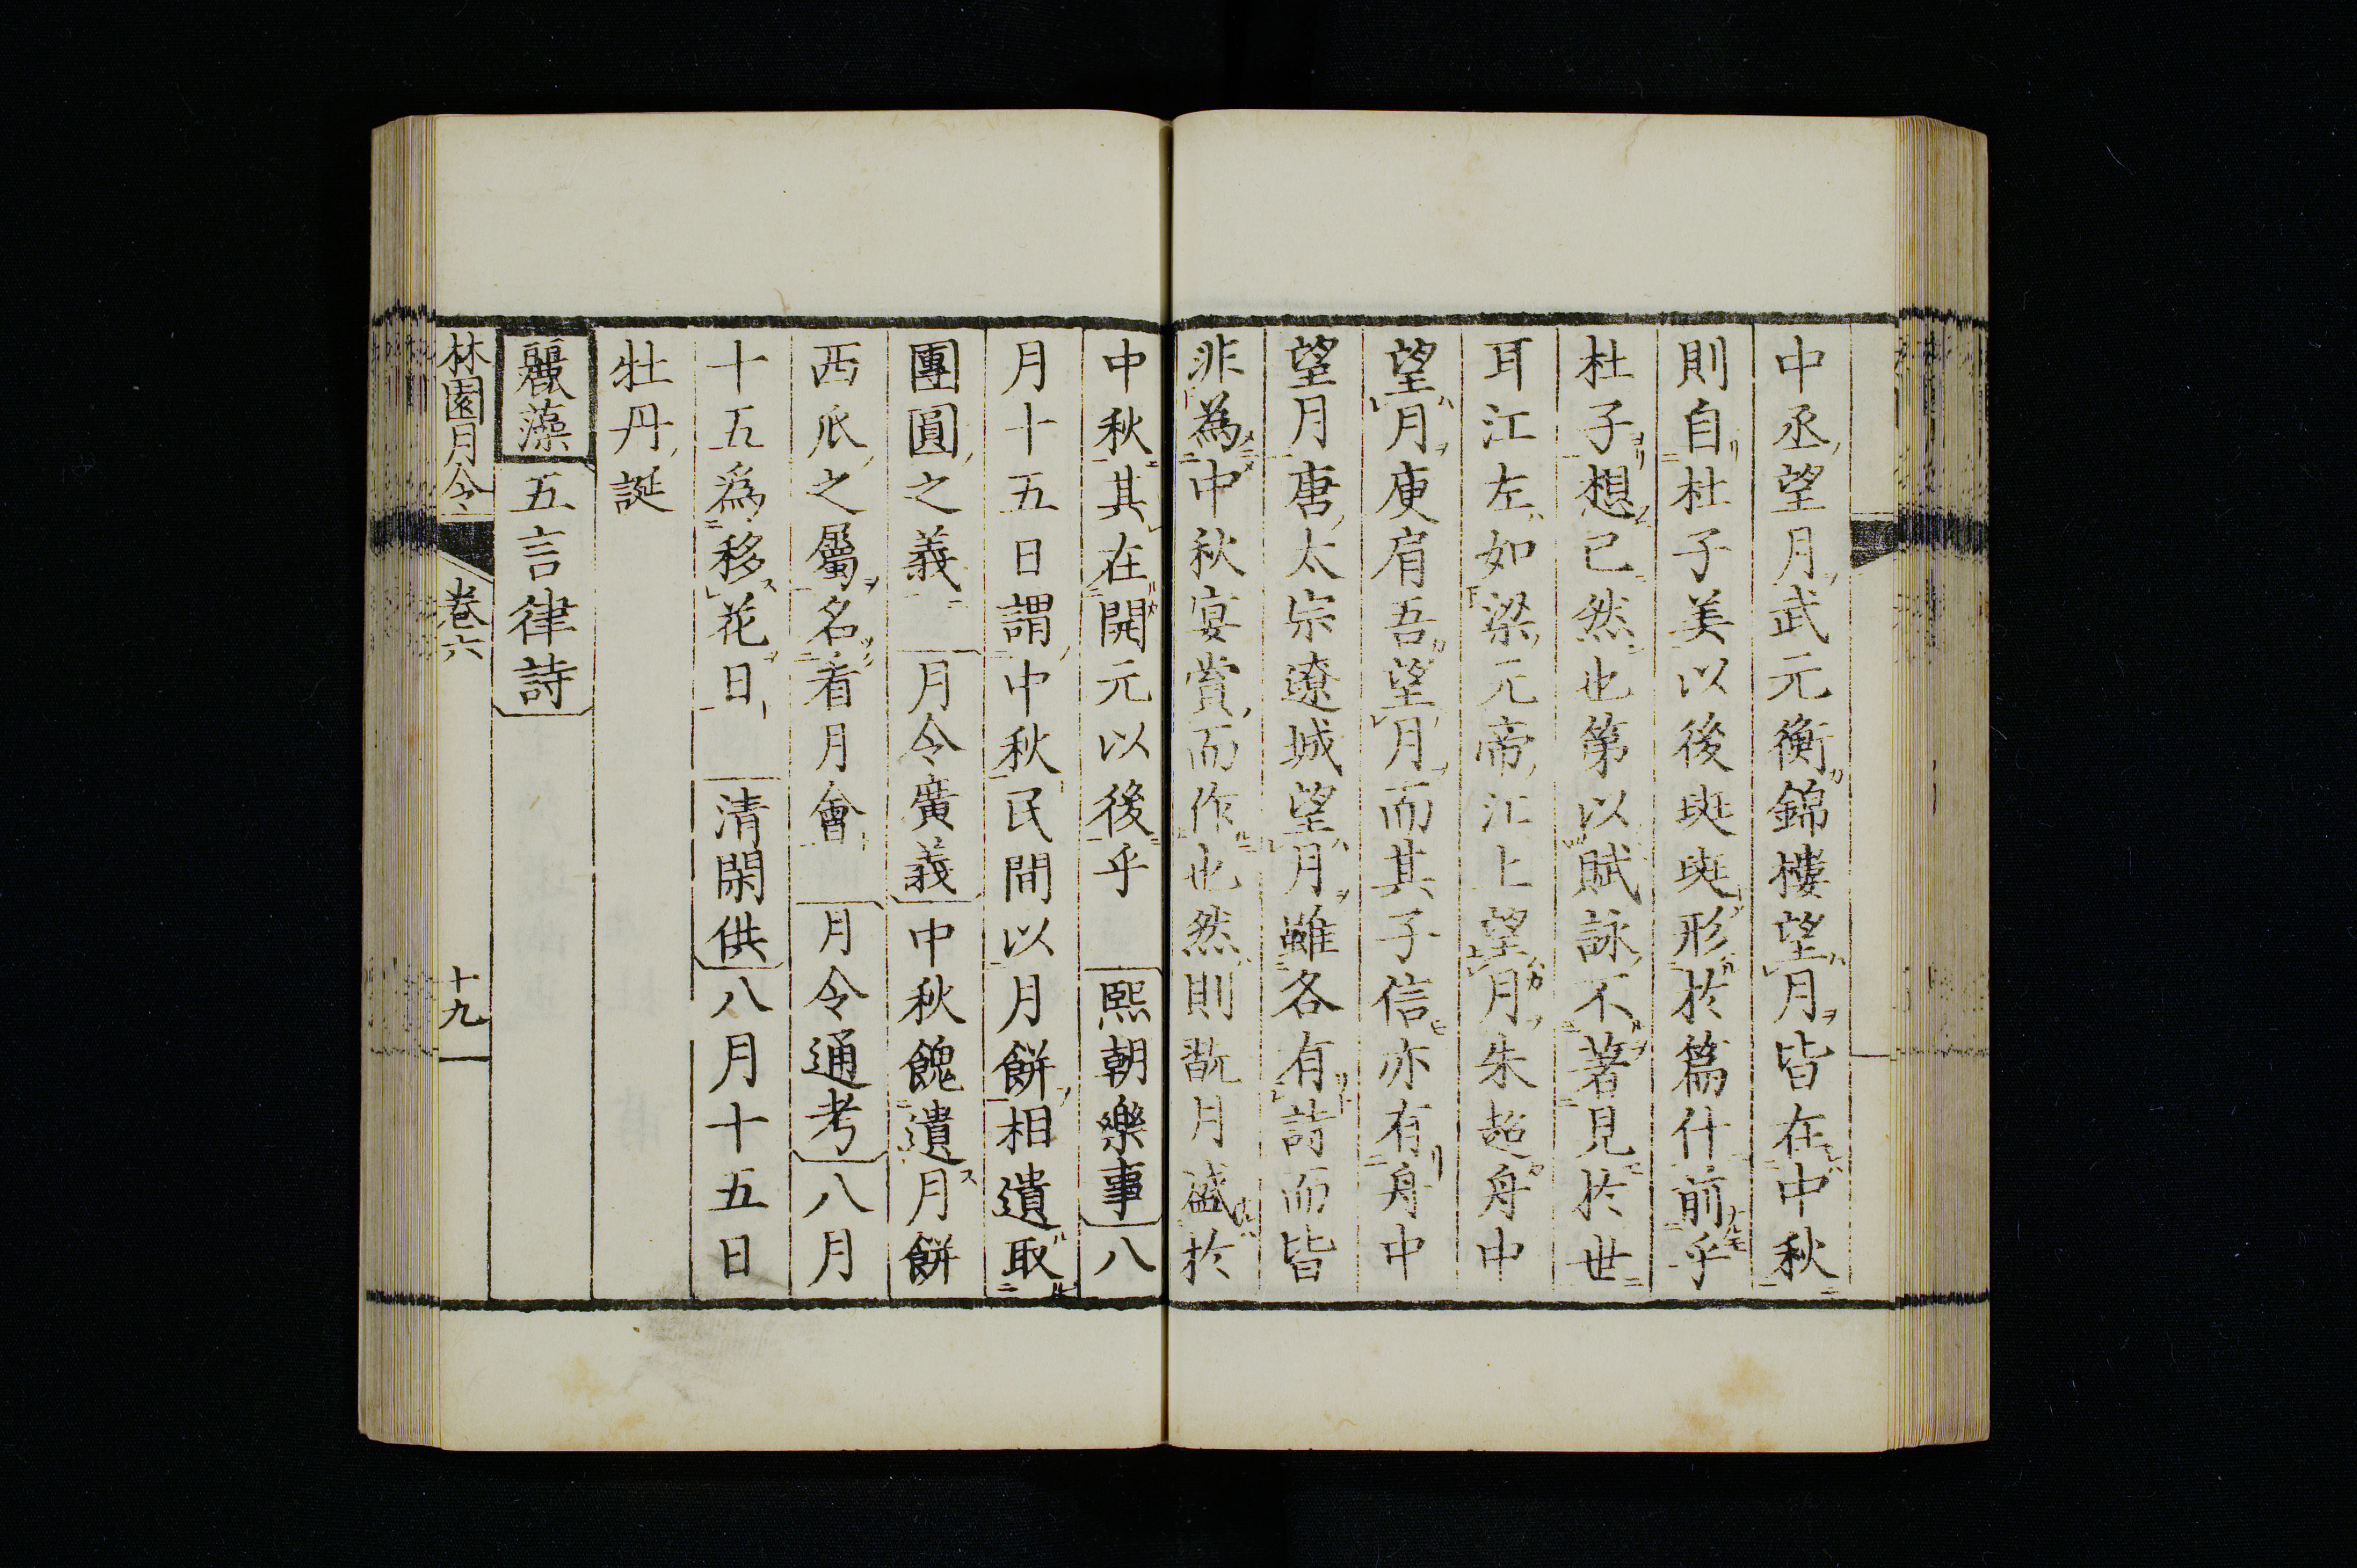 中丞望月武元衡錦樓望月皆在中秋
則自杜子美以後班班形於篇什前乎
杜子想已然也第以賦詠不著見於世
耳江左如梁元帝江上望月朱超舟中
望月庾肩吾望月而其子信亦有舟中
望月唐太宗遼城望月雖各有詩而皆
非為中秋宴賞而作也然則翫月盛於
中秋其在開元以後乎 熙朝樂事 八
月十五日謂中秋民間以月餅相遺取
團圓之義 月令廣義 中秋餽遺月餅
西瓜之屬名看月會 月令通考 八月
十五為移花日 清閑供 八月十五日
牡丹誕
麗藻 五言律詩
林園月令 卷六 十九